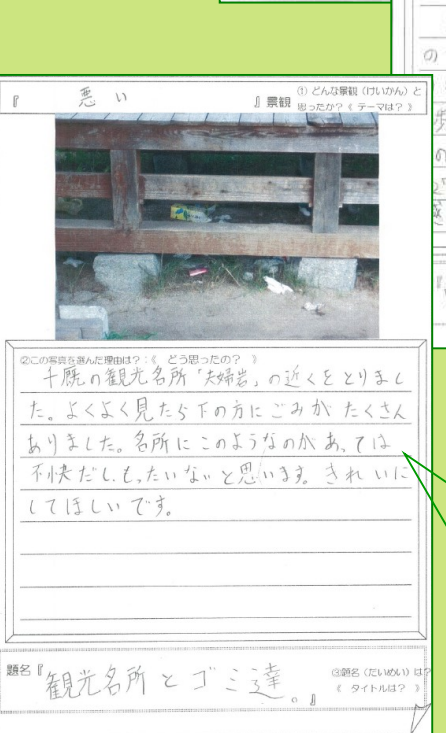 『 悪い 』景観
① どんな景観（けいかん）と
思ったか？《 テーマは？ 》
②この写真を選んだ理由は？：《 どう思ったの？ 》
千厩の観光名所「夫婦岩」の近くをとりまし
た。よくよく見たら下の方にごみがたくさん
ありました。名所にこのようなのがあっては
不快だし、もったいないと思います。きれいに
してほしいです。
題名『観光名所とゴミ達。』
③題名（だいめい）は？
《 タイトルは？ 》
の